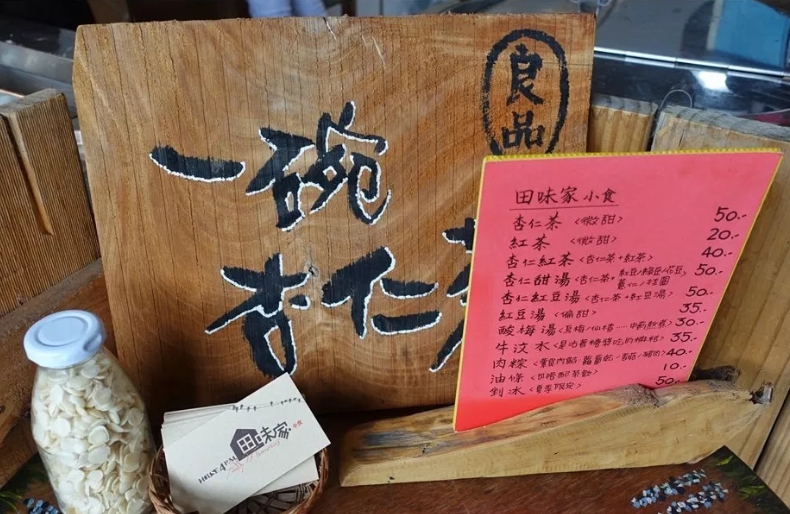 良品
一碗
杏仁茶
田味家小食
杏仁茶 <微甜> 50.-
紅茶 <微甜> 20.-
杏仁紅茶 <杏仁茶+紅茶> 40.-
杏仁甜湯 <杏仁茶+紅豆/綠豆/花豆/薏仁/桂圓 50.-
杏仁紅豆湯 <杏仁茶+紅豆湯> 50.-
紅豆湯 <偏甜> 35.-
酸梅湯 <烏梅/仙楂 30.-
牛汶水 35.-
肉粽 40.-
油條 10.-
剉冰 <夏季限定> 50.-
田味家